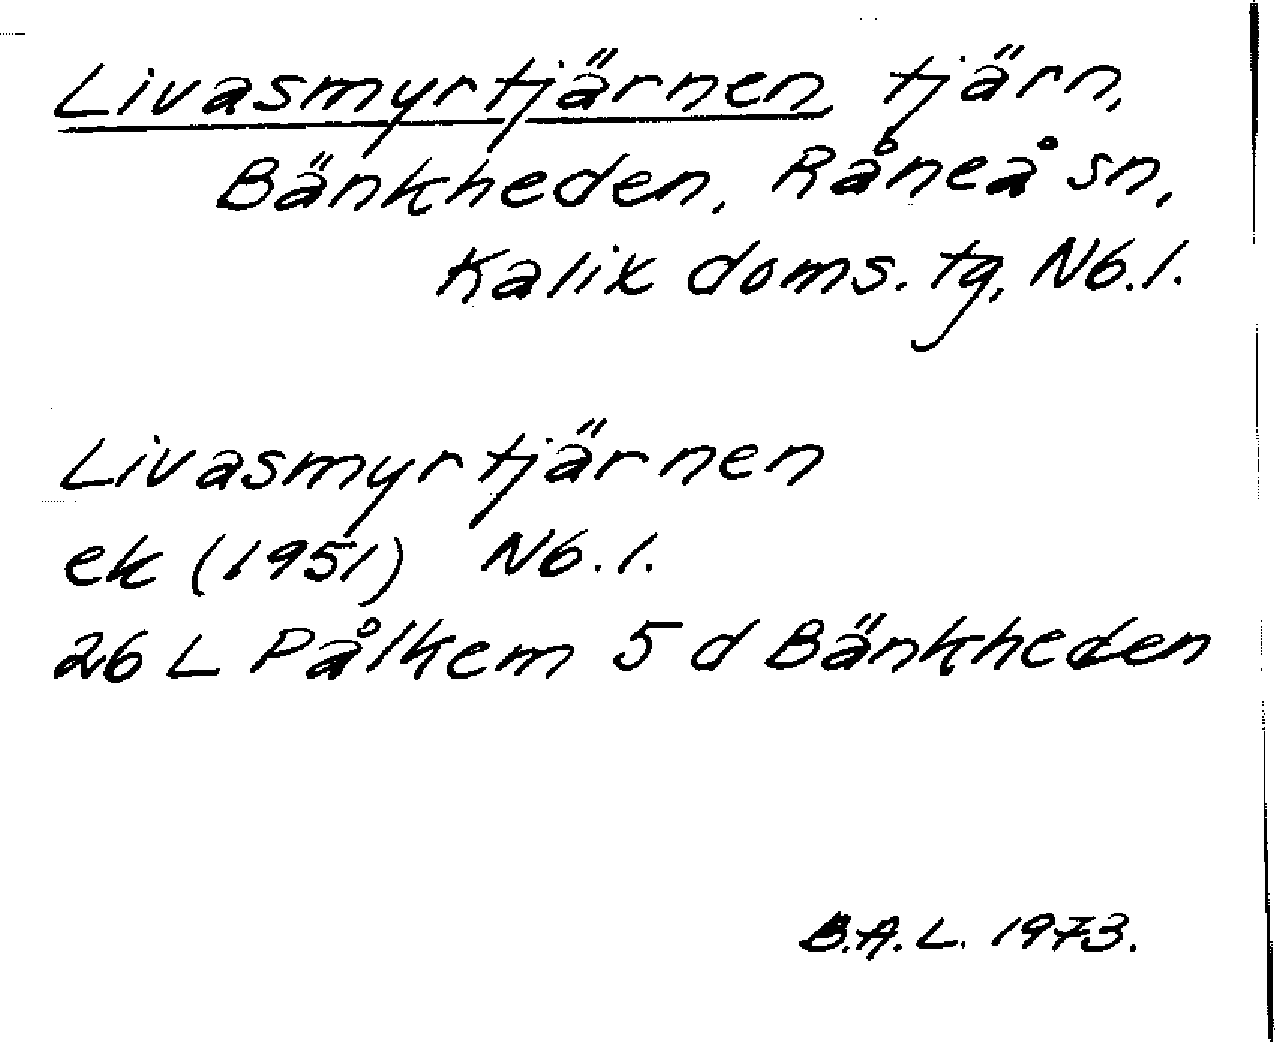 Livasmyrtjärnen, tjärn,
Bänkheden, Råneå sn,
Kalix doms. tg, Nb.l.
Livasmyrtjärnen
ek (1951) Nb.l.
26 L Pålkem 5 d Bänkheden
B.A.L. 1973.